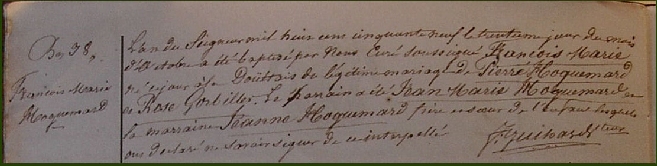 Bap 38.
François Marie
Hoquemard
L'an du Seigneur mil huit cent cinquante neuf le trentieme jour du mois
d'Octobre a été baptisé par Nous Curé soussigné François Marie
né ce jour à la Doutrais du légitime mariage de Pierre Hoquemard
et Rose Gorbillet. Le parrain a été Jean Marie Hoquemard et
la marraine Jeanne Hoquemard frère et sœur de l'enfant lesquels
ont déclaré ne savoir signer de ce interpellé
J. Guihard